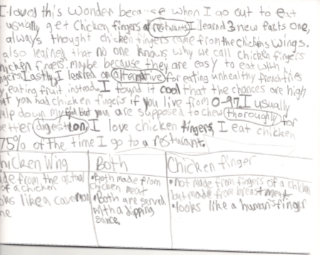 I loved this Wonder because when I go out to eat
usually get chicken fingers at restrunts I learned 3 new facts one,
always thought chicken fingers came from the chickens wings.
also learned that no one knows why we call chicken fingers
chicken fingers. maybe because they are easy to eat with
Lastly I learned an alternative for eating unhealthy
eating fruit instead. I found it cool that the chances are high
that you had chicken fingers if you live from 0-97. I usually
down my but you are supposed to chew thoroughly for
better digestion, I love chicken fingers, I eat chicken
75% of the time I go to a restrunt.
chicken Wing Both Chicken finger
made from the actual
of a chicken
looks like a
both made from
chicken meat
both are served
with a dipping
sauce
not made from fingers of a chicken
but made from breast meat
looks like a human finger